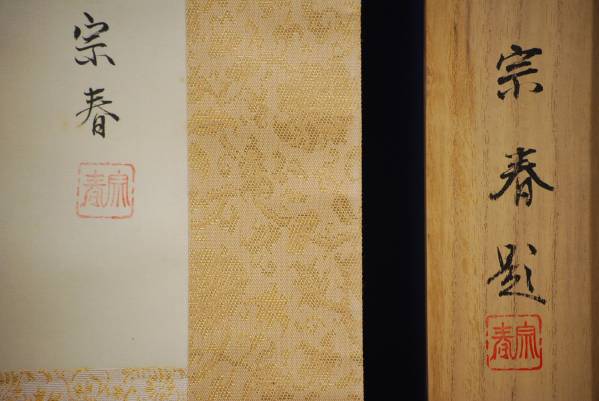 宗春
宗春
宗春題
宗春